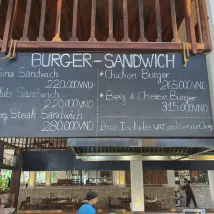 BURGER-SANDWICH
Sandwich
220.000VND
Sandwich
220.000VND
Steak Sandwich
280.000VND
* Chicken Burger
265.000VND
* Beef & Cheese Burger
315.000VND
Price Includes VAT and Service Charg